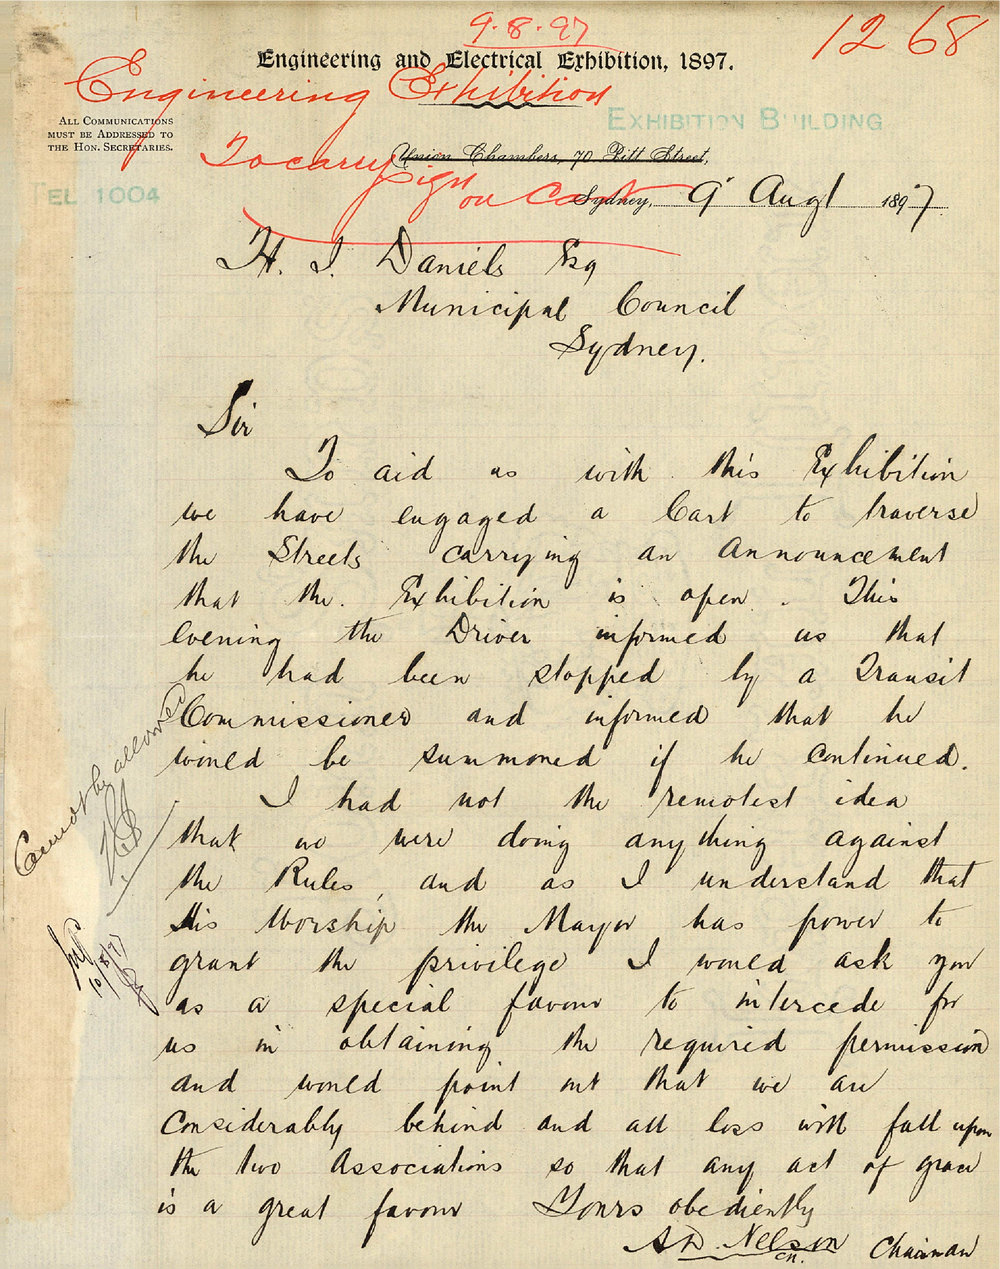 9.8.97
1268
Engineering and Electrical Exhibition, 1897.
Engineering Exhibition
To carry sign on Cart
ALL COMMUNICATIONS
MUST BE ADDRESSED TO
THE HON. SECRETARIES.
EXHIBITION BUILDING
TEL 1004
Union Chambers, 70 Pitt Street,
Sydney, 9 Augt 1897.
H. J. Daniels Esq
Municipal Council
Sydney.
Sir
To aid us with this Exhibition
we have engaged a Cart to traverse
the Streets carrying an Announcement
that the Exhibition is open. This
evening the Driver informed us that
he had been stopped by a Transit
Commissioner and informed that he
would be summoned if he continued.
I had not the remotest idea
that we were doing anything against
the Rules, and as I understand that
His Worship the Mayor has power to
grant the privilege I would ask you
as a special favour to intercede for
us in obtaining the required permission
and would point out that we are
Considerably behind and all loss will fall upon
the two Associations so that any act of grace
is a great favour Yours obediently
A D. Nelson Chairman
Cannot be allowed
10/8/97